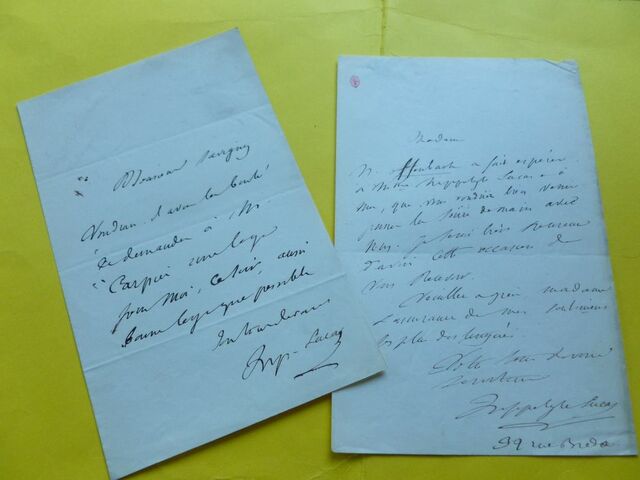 Monsieur Savigny
Voudrait il avoir la bonté
de demander à Mr
Carpier une loge
pour moi, ce soir, aussi
bonne loge que possible
Hyp. Lucas
Madame
M. Offenbach a fait espérer
à Mme Hippolyte Lucas et à
moi, que vous voudriez bien venir
passer la soirée demain avec
nous. Je serai très heureux
d'avoir cette occasion de
vous revoir.
Veuillez agréer madame
l'assurance de mes sentiments
les plus distingués.
Votre tout dévoué
serviteur
Hippolyte Lucas
39 rue Breda